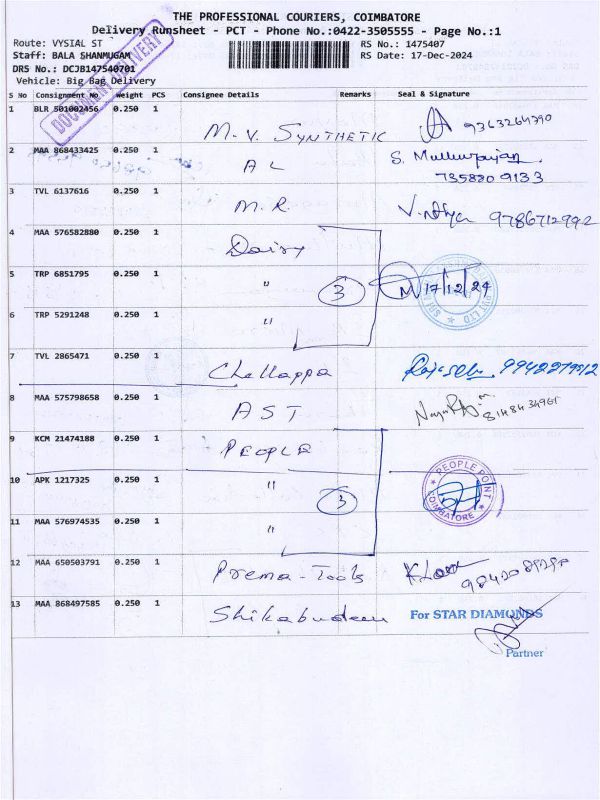 THE PROFESSIONAL COURIERS, COIMBATORE
Delivery Runsheet - PCT - Phone No.:0422-3505555 - Page No.:1
Route: VYSIAL ST RS No.: 1475407
Staff: BALA SHANMUGAM RS Date: 17-Dec-2024
DRS No.: DCJB147540701
Vehicle: Big Bag Delivery
DOCUMENT DELIVERY
S No Consignment No. Weight PCS Consignee Details Remarks Seal & Signature
1 BLR 501002456 0.250 1 M.V. SYNTHETIC
2 MAA 868433425 0.250 1 A L S.
735880 9133
3 TVL 6137616 0.250 1 M.R. 9786712992
4 MAA 576582880 0.250 1 Daisy
5 TRP 6851795 0.250 1 " 3 17/12/24
6 TRP 5291248 0.250 1 "
7 TVL 2865471 0.250 1 Chellappa
8 MAA 575798658 0.250 1 AST
9 KCM 21474188 0.250 1 PEOPLE
10 APK 1217325 0.250 1 " 3 PEOPLE POINT COIMBATORE
11 MAA 576974535 0.250 1 "
12 MAA 650503791 0.250 1 Prema-Tools
13 MAA 868497585 0.250 1 Shikabudeen For STAR DIAMONDS
Partner